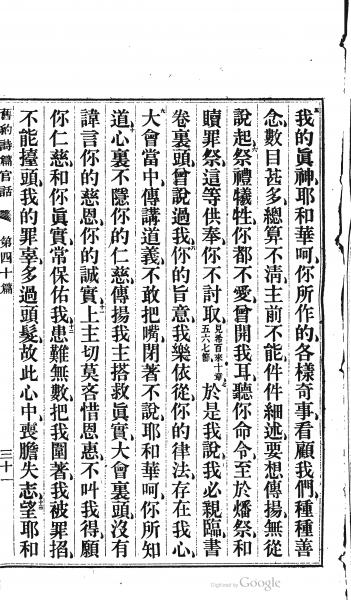 我的眞神耶和華呵你所作的各樣奇事看顧我們種種善
念數目甚多總算不清主前不能件件細述要想傳揚無從
說起六祭禮犧牲你都不愛曾開我耳聽你命令至於燔祭和
贖罪祭這等供奉你不討取見希百來十章五六七節七於是我說我必親臨書
卷裏頭曾說過我八你的旨意我樂依從你的律法存在我心
九大會當中傳講道義不敢把嘴閉著不說耶和華呵你所知
道十心裏不隱你的仁慈傳揚我主搭救眞實大會裏頭沒有
諱言你的慈恩你的誠實十一上主切莫吝惜恩惠不叫我得願
你仁慈和你眞實常保佑我十二患難無數把我圍著我被罪招
不能擡頭我的罪辜多過頭髮故此心中喪膽失志望耶和
舊約詩篇官話 第四十篇 三十一
Digitized by Google